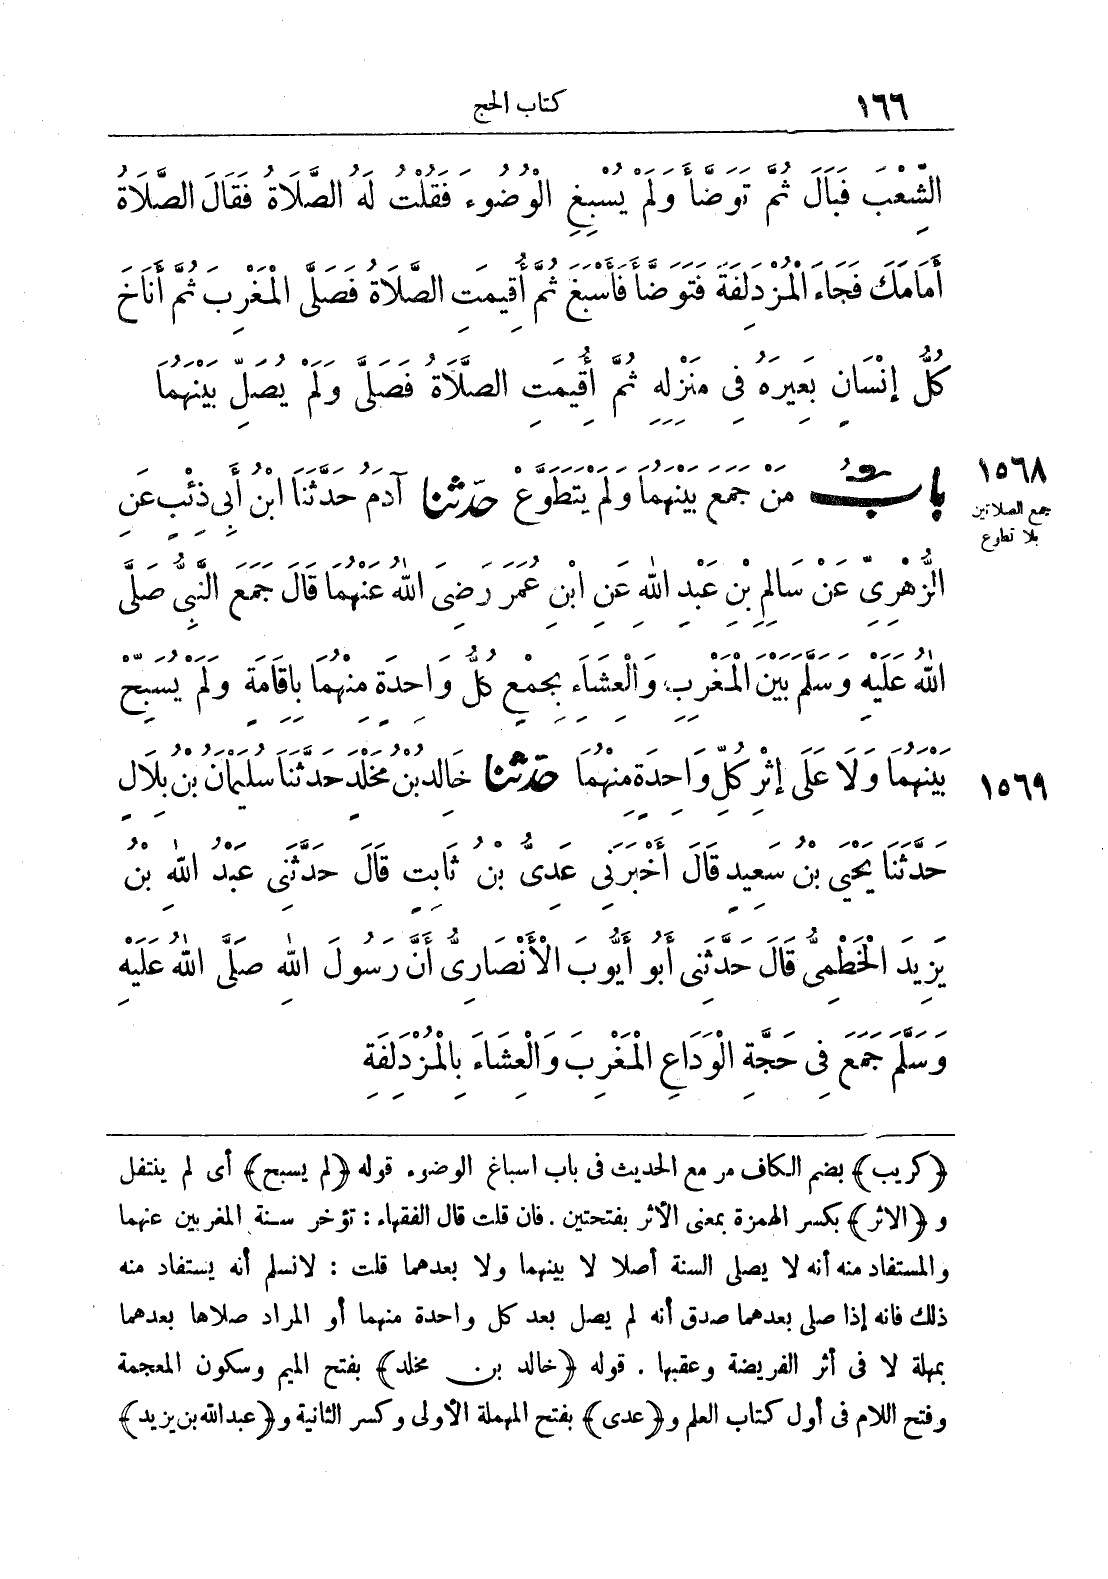 ١٦٦ كتاب الحج
الشِّعْبَ فَبَالَ ثُمَّ تَوَضَّأَ وَلَمْ يُسْبِغِ الْوُضُوءَ فَقُلْتُ لَهُ الصَّلَاةُ فَقَالَ الصَّلَاةُ
أَمَامَكَ فَجَاءَ الْمُزْدَلِفَةَ فَتَوَضَّأَ فَأَسْبَغَ ثُمَّ أُقِيمَتِ الصَّلَاةُ فَصَلَّى الْمَغْرِبَ ثُمَّ أَنَاخَ
كُلُّ إِنْسَانٍ بَعِيرَهُ فِى مَنْزِلِهِ ثُمَّ أُقِيمَتِ الصَّلَاةُ فَصَلَّى وَلَمْ يُصَلِّ بَيْنَهُمَا
بابٌ مَنْ جَمَعَ بَيْنَهُمَا وَلَمْ يَتَطَوَّعْ حدّثنا آدَمُ حَدَّثَنَا ابْنُ أَبِى ذِئْبٍ عَنِ
١٥٦٨
جمع الصلاتين
بلا تطوع
الزُّهْرِىِّ عَنْ سَالِمِ بْنِ عَبْدِ اللهِ عَنِ ابْنِ عُمَرَ رَضِىَ اللهُ عَنْهُمَا قَالَ جَمَعَ النَّبِىُّ صَلَّى
اللهُ عَلَيْهِ وَسَلَّمَ بَيْنَ الْمَغْرِبِ وَالْعِشَاءِ بِجَمْعٍ كُلُّ وَاحِدَةٍ مِنْهُمَا بِإِقَامَةٍ وَلَمْ يُسَبِّحْ
بَيْنَهُمَا وَلَا عَلَى إِثْرِ كُلِّ وَاحِدَةٍ مِنْهُمَا حدّثنا خَالِدُ بْنُ مَخْلَدٍ حَدَّثَنَا سُلَيْمَانُ بْنُ بِلَالٍ
١٥٦٩
حَدَّثَنَا يَحْيَى بْنُ سَعِيدٍ قَالَ أَخْبَرَنِى عَدِىُّ بْنُ ثَابِتٍ قَالَ حَدَّثَنِى عَبْدُ اللهِ بْنُ
يَزِيدَ الْخَطْمِىُّ قَالَ حَدَّثَنِى أَبُو أَيُّوبَ الْأَنْصَارِىُّ أَنَّ رَسُولَ اللهِ صَلَّى اللهُ عَلَيْهِ
وَسَلَّمَ جَمَعَ فِى حَجَّةِ الْوَدَاعِ الْمَغْرِبَ وَالْعِشَاءَ بِالْمُزْدَلِفَةِ
﴿كريب﴾ بضم الكاف مر مع الحديث فى باب اسباغ الوضوء قوله ﴿لم يسبح﴾ أى لم يتنفل
و ﴿الاثر﴾ بكسر الهمزة بمعنى الأثر بفتحتين . فان قلت قال الفقهاء : تؤخر سنة المغربين عنهما
والمستفاد منه أنه لا يصلى السنة أصلا لا بينهما ولا بعدهما قلت : لانسلم أنه يستفاد منه
ذلك فانه إذا صلى بعدهما صدق أنه لم يصل بعد كل واحدة منهما أو المراد صلاها بعدهما
بمهلة لا فى أثر الفريضة وعقبها . قوله ﴿خالد بن مخلد﴾ بفتح الميم وسكون المعجمة
وفتح اللام فى أول كتاب العلم و﴿عدى﴾ بفتح المهملة الأولى وكسر الثانية و﴿عبدالله بن يزيد﴾